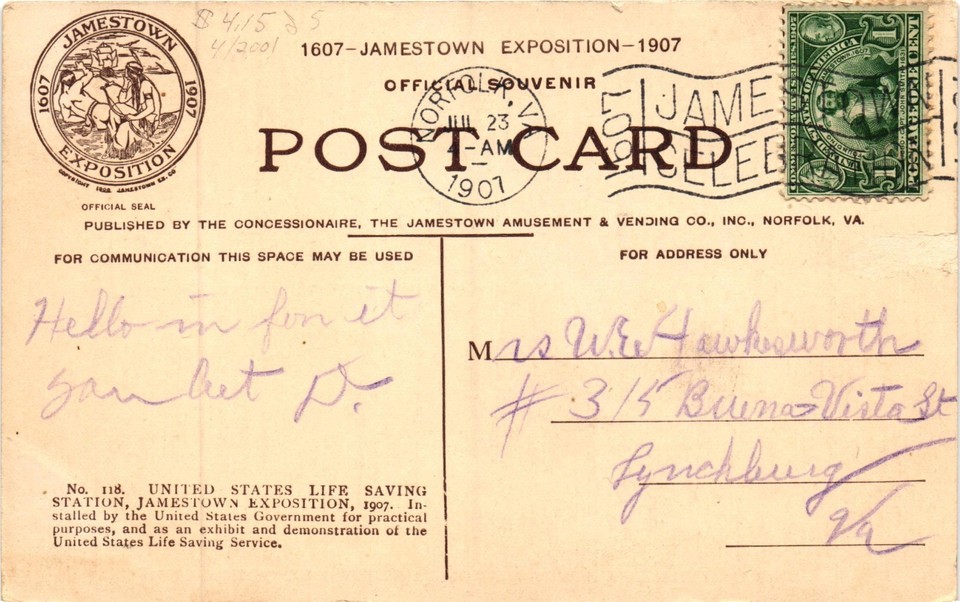 $4.15
4/2001
JAMESTOWN
1607 1907
EXPOSITION
OFFICIAL SEAL
1607-JAMESTOWN EXPOSITION-1907
OFFICIAL SOUVENIR
POST CARD
NORFOLK, VA
JUL 23
4-AM
1907
1607
JAME
CELEB
UNITED STATES OF AMERICA
POSTAGE ONE CENT
PUBLISHED BY THE CONCESSIONAIRE, THE JAMESTOWN AMUSEMENT & VENDING CO., INC., NORFOLK, VA.
FOR COMMUNICATION THIS SPACE MAY BE USED
Hello in for it
you bet D.
No. 118. UNITED STATES LIFE SAVING
STATION, JAMESTOWN EXPOSITION, 1907. In-
stalled by the United States Government for practical
purposes, and as an exhibit and demonstration of the
United States Life Saving Service.
FOR ADDRESS ONLY
Mrs W.E. Hawkesworth
# 315 Buena-Vista St
Lynchburg
Va